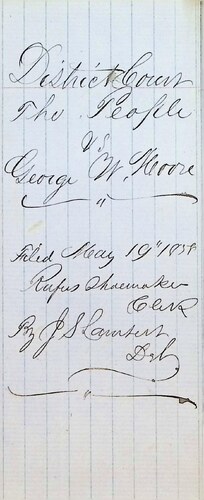 District Court
The People
vs
George W. Moore
Filed May 19th 1858
Rufus Shoemaker
Clerk
By J S Lambert
Dep